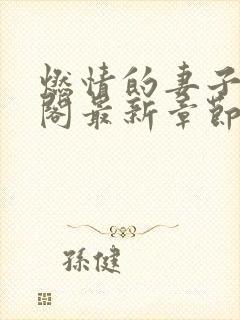 燃情的妻子
閣最新章節
孫健